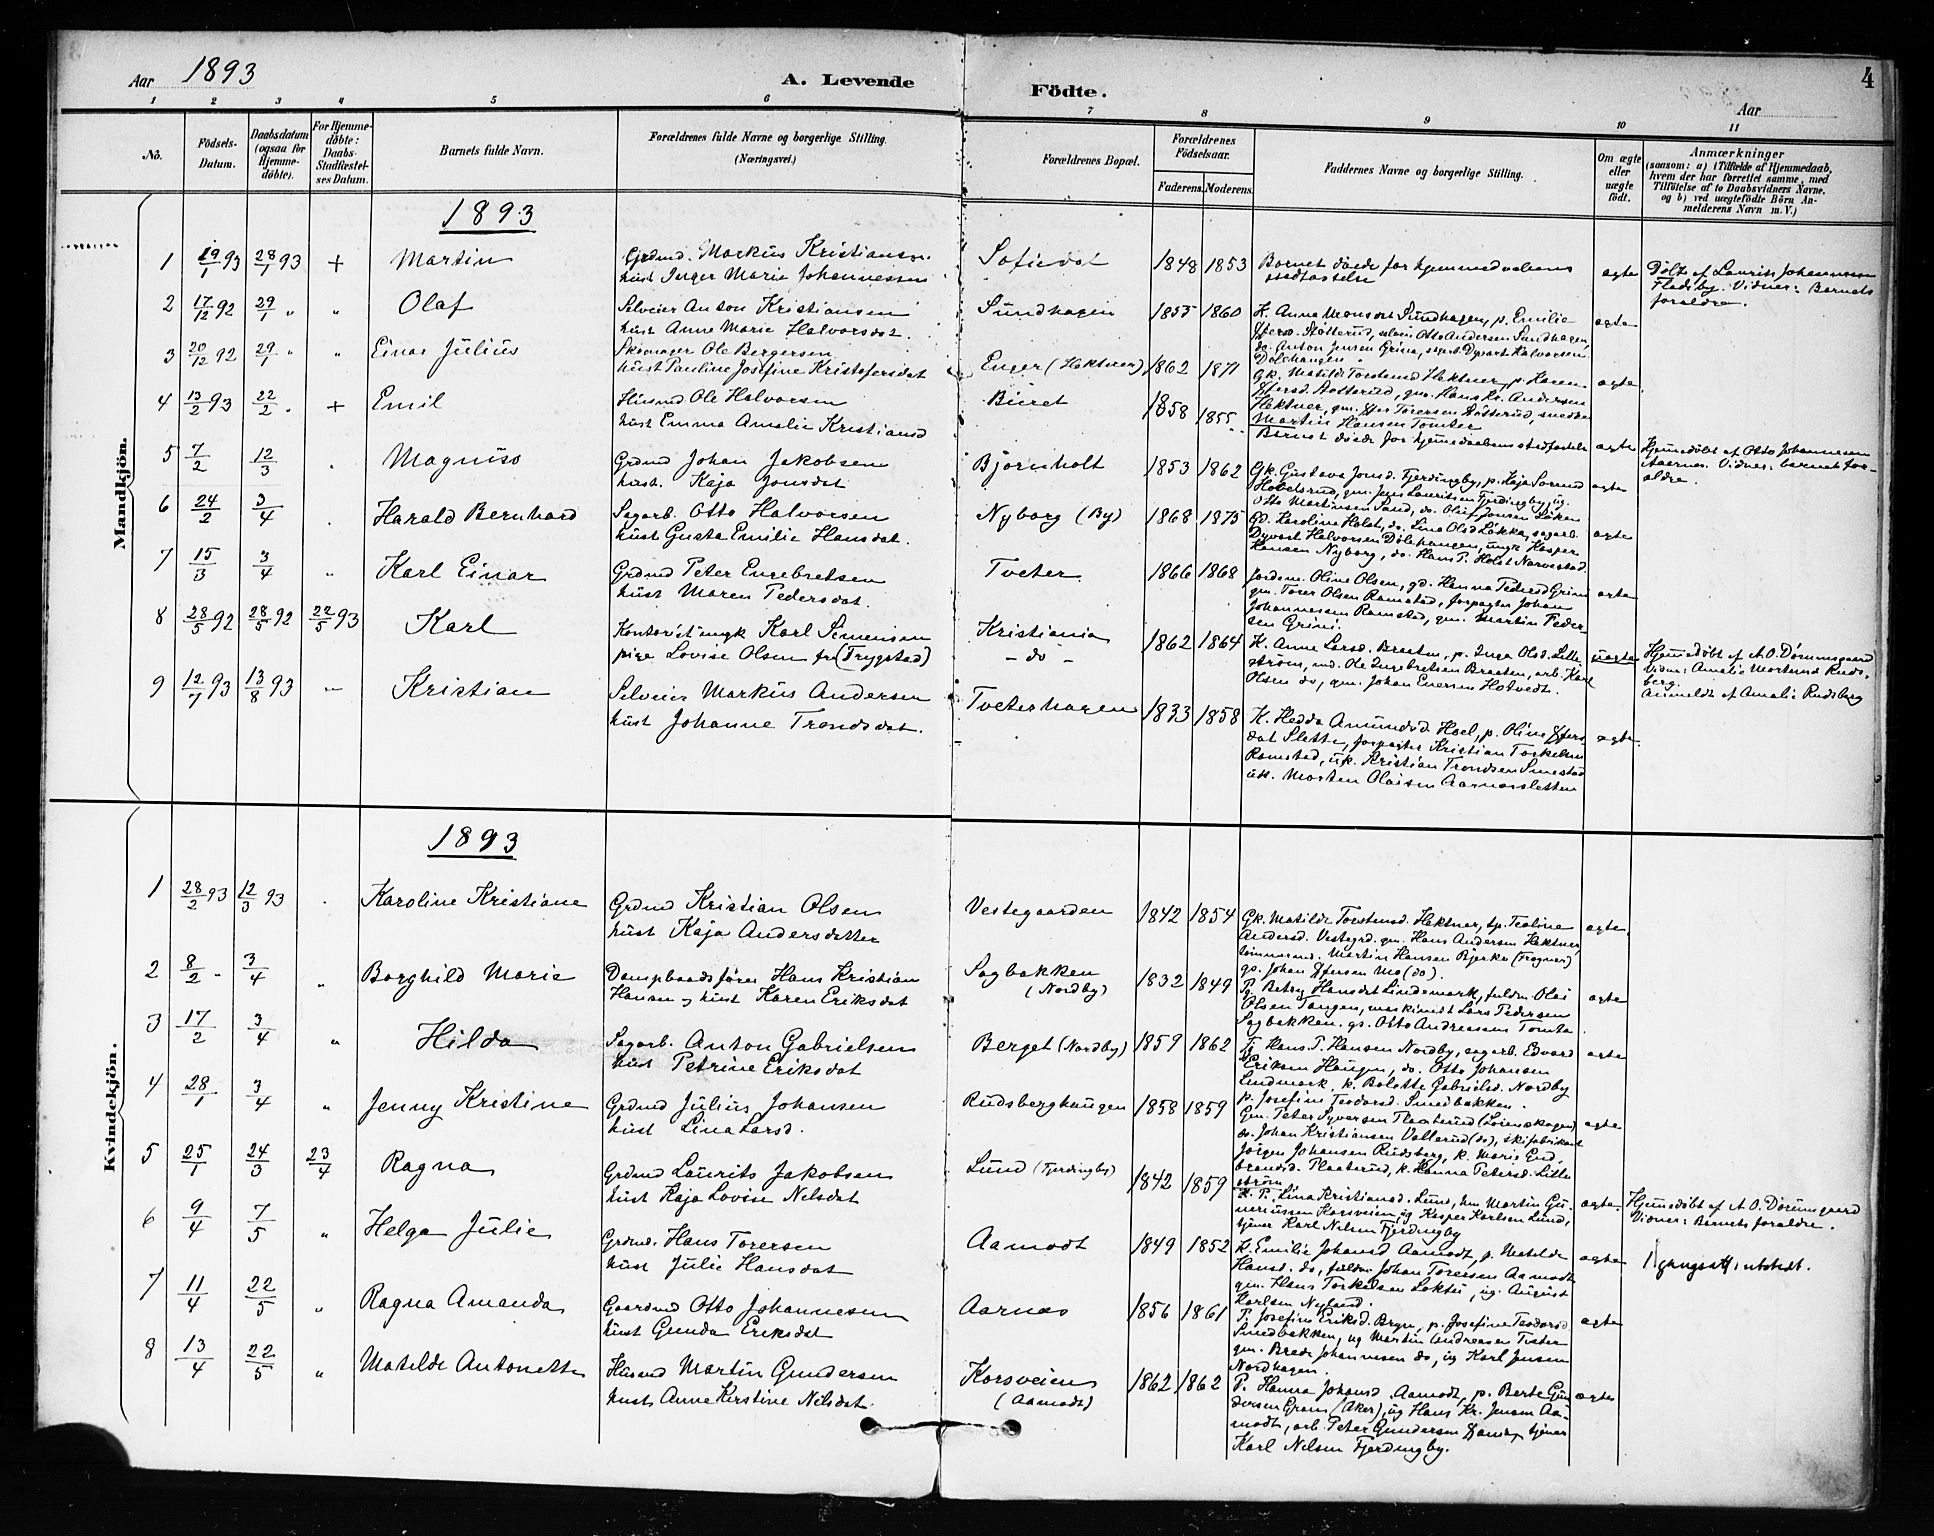 Aar 1893 A. Levende Födte. Aar 4
1 2 3 4 5 6 7 8 9 10 11
No.
Födsels-Datum.
Daabsdatum (ogsaa for Hjemme-døbte).
For Hjemme-døbte: Daabs-Stadfæstel-ses Datum.
Barnets fulde Navn.
Forældrenes fulde Navne og borgerlige Stilling.
(Næringsvei.)
Forældrenes Bopæl.
Forældrenes Födselsaar.
Faderens. Moderens.
Faddernes Navne og borgerlige Stilling.
Om ægte eller uægte født.
Anmærkninger
(saasom: a) i Tilfælde af Hjemmedaab,
hvem der har forrettet samme, med
Tilföielse af to Daabsvidners Navne,
og b) ved uægtefödte Börn An-
melderens Navn m. V.)
Mandkjön.
1893
1 19/1 93 28/1 93 + Martin
Grdmd. Markus Kristiansen
hust Inger Marie Johannessen
Sofiedal 1848 1853
Barnet døde før hjemmedaabens
stadfæstelse
ægte
Døbt af Laurits Johannessen
Fladeby. Vidner: Barnets
forældre.
2 17/12 92 29/1 " " Olaf
Selveier Anton Kristiansen
hust Anne Marie Halvorsdat.
Sundhagen 1855 1860
K. Anna Monsdat Sundhagen, p. Emilie
Støtterud, selvei. Otto Andersen Sundhagen,
do. Anton Jensen Grina, sagarb. Dyvart Halvorsen
Dølehaugen
ægte
3 20/12 92 29/1 " " Einar Julius
Skomager Ole Bergersen
hust Pauline Josefine Kristofersdat
Enger (Hektner) 1862 1871
Gk. Matilde Torstensd Hektner, p. Karen
Støtterud, gm. Hans Kr. Andersen
Hektner, gm. Torersen Støtterud, snedker
Martin Hansen Tomter
ægte
4 13/2 93 22/2 " + Emil
Husmd Ole Halvorsen
hust Emma Amalie Kristiansd
Bieret 1858 1855
Barnet døde før hjemmedaabens stadfæstelse
ægte
Hjemmedøbt af Otto Johannessen
Aarnes. Vidner: barnets for-
ældre.
5 7/2 12/3 " Magnus
Grdmd Johan Jakobsen
hust. Kaja Jonsdat
Bjørnholt 1853 1862
Gk. Gustava Jonsd. Fjerdingby, p. Kaja Sørensd
gm. Jens Lauritsen Fjerdingby, ug.
Otto Martinsen Sand, do. Oluf Jonsen Løken
ægte
6 24/2 3/4 " Harald Bernhard
Sagarb. Otto Halvorsen
hust Gusta Emilie Hansdat.
Nyborg (By) 1868 1875
Gd. Karoline Holst, do. Lina Olsd Løkka, sagarb.
Dyvart Halvorsen Dølehaugen, ungk. Kasper
Hansen Nyborg, do. Hans P. Holst Narvestad.
ægte
7 15/3 3/4 " Karl Einar
Grdmd Peter Engebretsen
hust Maren Pedersdat.
Tveter 1866 1868
Jordem. Oline Olsen, gd. Hanna Pedersd Grini
gm. Torer Olsen Ramstad, forpagter Johan
Johannessen Ramstad, gm. Martin Peder-
sen Grini.
ægte
8 28/5 92 28/5 92 22/5 93 Karl
Kontorist ungk Karl Simensen
pige Lovise Olsen fr (Trygstad)
Kristiania
- do - 1862 1864
K. Anne Larsd. Braaten, p. Inga Olsd. Lille
strøm, md. Ole Ingebretsen Braaten, arb. Karl
Olsen do, gm. Johan Evensen Holtvedt.
uægte
Hjemmedøbt af A. O. Dørumsgaard
Vidner: Amalie Mortensd Ruds-
berg.
Anmeldt af Amalie Rudsberg
9 12/7 93 13/8 93 " Kristian
Selveier Markus Andersen
hust Johanne Trondsdat.
Tveterhagen 1833 1858
K. Hedda Amundsd Hoel, p. Oline
Slette, forpagter Kristian Torkelsen
Ramstad, uk. Kristian Trondsen Smestad
uk. Morten Olaisen Aarnæssletten
ægte.
Kvindekjön.
1893
1 28/2 93 12/3 93 " Karoline Kristiane
Grdmd Kristian Olsen
hust Kaja Andersdatter
Vestegaarden 1842 1854
Gk. Matilde Torstensd. Hektner, tp. Teoline
Andersd. Vestegrd. gm. Hans Andersen Hektner
tømmermd. Martin Hansen Bjerke (Frogner)
gs. Johan Mo (do).
ægte.
2 8/2 " 3/4 " Borghild Marie
Dampbaadsfører Hans Kristian
Hansen og hust Karen Eriksdat
Sagbakken
(Nordby) 1832 1849
P. Betsy Hansdat Lindemark, fuldm Olai
Olsen Tangen, maskinist Lars Pedersen
Sagbakken. gs. Otto Andreassen Tomta
ægte
3 17/2 3/4 " Hilda
Sagarb. Anton Gabrielsen
hust Petrine Eriksdat
Berget (Nordby) 1859 1862
Hans P. Hansen Nordby, sagarb. Edvard
Eriksen Haugen, do. Otto Johansen
Lindmark, k. Bolette Gabrielsd. Nordby
p. Josefine Teodorsd. Smedbakken.
ægte
4 28/1 3/4 " Jenny Kristine
Grdmd Julius Johansen
hust Lina Larsd.
Rudsberghaugen 1858 1859
Gm. Peter Syversen Plaaterud (Lørenskogen)
do. Johan Kristiansen Vallerud (do), skifabrikant
Jørgen Johansen Rudsberg, k. Marie End.
brandsd. Plaaterud, k. Hanna Petersd. Lille
strøm
ægte
5 25/1 24/3 23/4 Ragna
Grdmd Laurits Jakobsen
hust Kaja Lovise Nilsdat
Lund (Fjerdingby) 1842 1859
P. Lina Kristiansd. Lund, hm Martin Gu-
neriussen Korsveien, ug Kasper Karlsen Lund,
tjener Karl Nilsen Fjerdingby
ægte.
Hjemmedøbt af A. O. Dørumsgaard
Vidner: Barnets forældre.
6 9/4 7/5 " Helga Julie
Grdmd. Hans Torersen
hust Julie Hansdat
Aamodt 1849 1852
K. Emilie Johansd Aamodt, p. Matilde
Hansd. do, fuldm Johan Torersen Aamodt
gm. Hans Torkelsen Løkter, ug. August
Karlsen Nyland.
ægte
1 gangsatt. utstedt.
7 11/4 22/5 " Ragna Amanda
Gaardmd Otto Johannesen
hust Gunda Eriksdat
Aarnæs 1856 1861
P. Josefine Eriksd. Bryn, p. Josefine Teodorsd
Smedbakken, ug Martin Andreasen Tveter
gm. Brede Johannesen do, ug Karl Jensen
Nordhagen.
ægte
8 13/4 22/5 " Matilde Antonette
Husmd Martin Gundersen
hust Anne Kirstine Nilsdat.
Korsveien
(Aamodt) 1862 1862
P. Hanna Johansd. Aamodt, p. Berte Gun
dersen Gran (Aker), ug Hans Kr. Jensen Aa-
modt, arb. Peter Gundersen tjener
Karl Nilsen Fjerdingby.
ægte